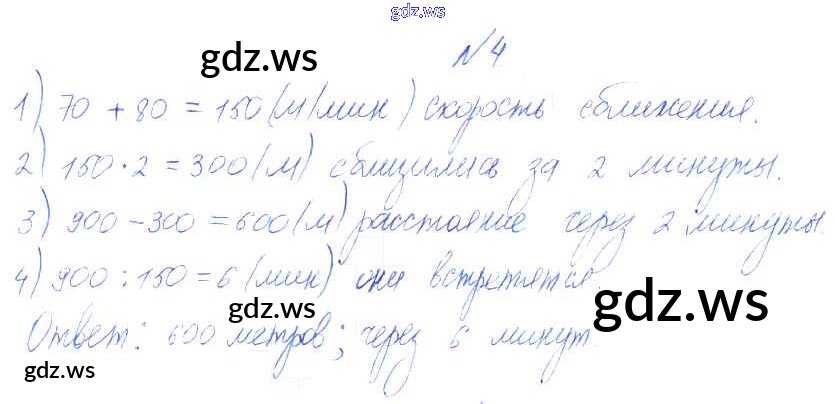 gdz.ws
№4
gdz.ws
1) 70 + 80 = 150 (м/мин) скорость сближения.
2) 150 · 2 = 300 (м) сблизились за 2 минуты.
3) 900 - 300 = 600 (м) расстояние через 2 минуты.
4) 900 : 150 = 6 (мин) они встретятся.
gdz.ws
gdz.ws
Ответ: 600 метров; через 6 минут.
gdz.ws